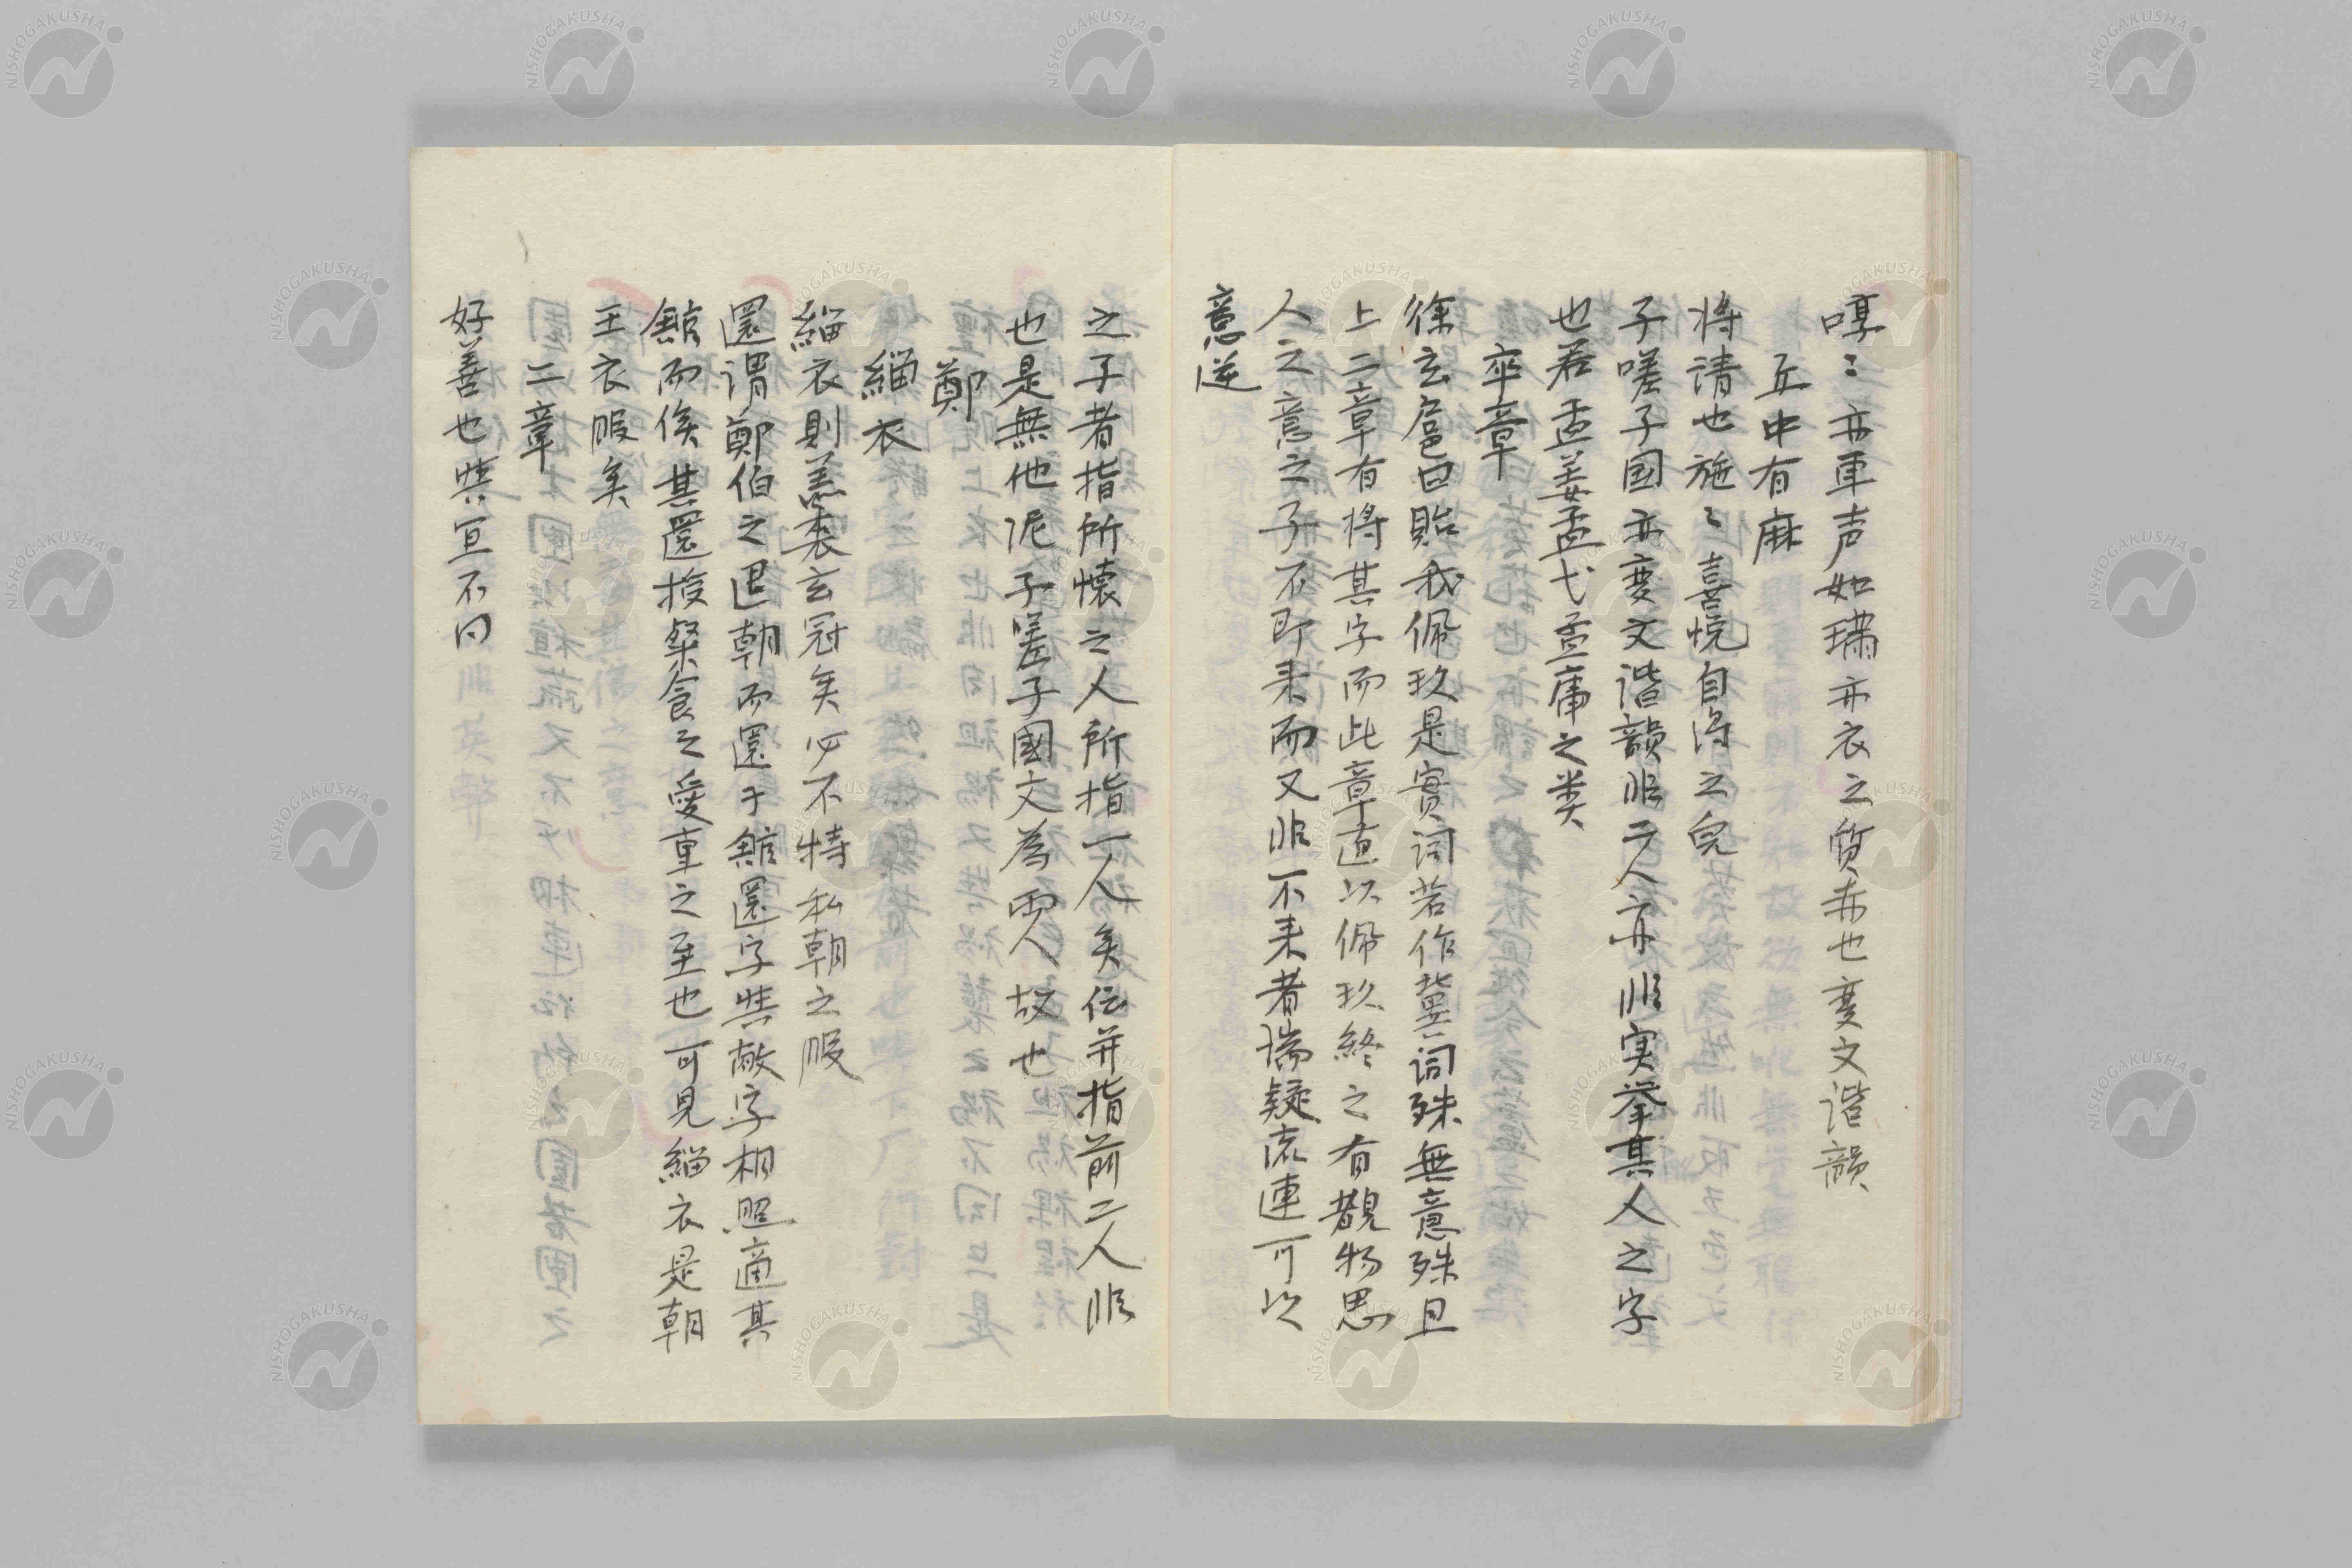 啍〻亦車声如璊亦衣之質赤也変文諧韻
丘中有麻
将請也施〻喜悦自得之皃
子嗟子国亦変文諧韻非二人亦非実挙其人之字
也若孟姜孟弋孟庸之类
卒章
徐玄扈曰貽我佩玖是實词若作冀词殊無意殊且
上二章有将其字而此章直以佩玖終之有覩物思
人之意之子不即来而又非不来者瑞疑流連可以
意逆
之子者指所懐之人所指一人矣伝并指前二人非
也是無他泥子嗟子國文為両人故也
鄭
緇衣
緇衣則羔裘玄冠矣必不特私朝之服
還謂鄭伯之退朝而還于館還字與敝字相照適其
館而俟其還授粲食之愛重之至也可見緇衣是朝
王衣服矣
二章
好善也與宜不同
NISHOGAKUSHA